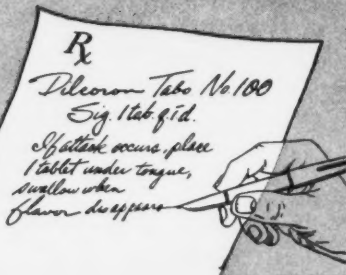 Rx
Dilcoron Tabs No. 100
Sig. 1 tab. q.i.d.
If attack occurs, place
1 tablet under tongue,
swallow when
flavor disappears